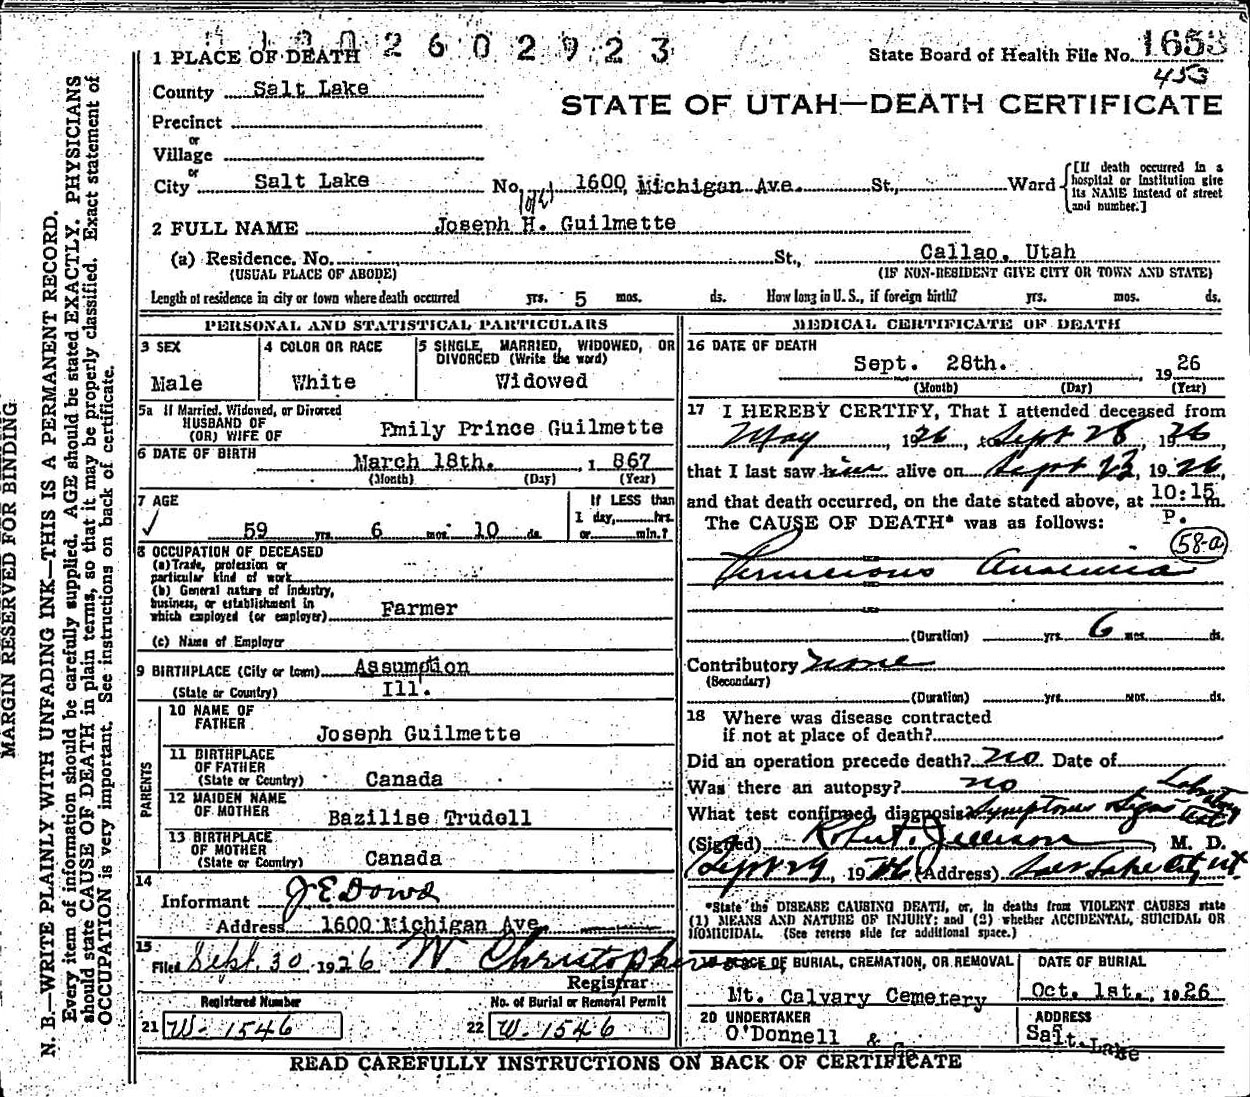 2 6 0 2 9 2 3
1 PLACE OF DEATH
State Board of Health File No. 1653
453
County Salt Lake
STATE OF UTAH—DEATH CERTIFICATE
Precinct
or
Village
or
City Salt Lake No. 1600 Michigan Ave. St., Ward
[If death occurred in a hospital or institution give its NAME instead of street and number.]
2 FULL NAME Joseph H. Guilmette
(a) Residence. No. St., Callao, Utah
(USUAL PLACE OF ABODE) (IF NON-RESIDENT GIVE CITY OR TOWN AND STATE)
Length of residence in city or town where death occurred yrs. 5 mos. ds. How long in U. S., if foreign birth? yrs. mos. ds.
PERSONAL AND STATISTICAL PARTICULARS
3 SEX
Male
4 COLOR OR RACE
White
5 SINGLE, MARRIED, WIDOWED, OR
DIVORCED (Write the word)
Widowed
5a If Married, Widowed, or Divorced
HUSBAND OF
(OR) WIFE OF Emily Prince Guilmette
6 DATE OF BIRTH
March 18th. , 1 867
(Month) (Day) (Year)
7 AGE
59 yrs. 6 mos. 10 ds.
If LESS than
1 day, hrs.
or min.?
8 OCCUPATION OF DECEASED
(a) Trade, profession or
particular kind of work
(b) General nature of industry,
business, or establishment in
which employed (or employer) Farmer
(c) Name of Employer
9 BIRTHPLACE (City or town) Assumption
(State or Country) Ill.
PARENTS
10 NAME OF
FATHER
Joseph Guilmette
11 BIRTHPLACE
OF FATHER
(State or Country) Canada
12 MAIDEN NAME
OF MOTHER
Bazilise Trudell
13 BIRTHPLACE
OF MOTHER
(State or Country) Canada
14
Informant J E Dowd
Address 1600 Michigan Ave.
15
Filed Sept. 30 1926 W Christopherson
Registrar
Registered Number
21 W-1546
No. of Burial or Removal Permit
22 W-1546
MEDICAL CERTIFICATE OF DEATH
16 DATE OF DEATH
Sept. 28th. 1926
(Month) (Day) (Year)
17 I HEREBY CERTIFY, That I attended deceased from
May , 1926, to Sept 28, 1926
that I last saw him alive on Sept 23, 1926,
and that death occurred, on the date stated above, at 10:15 m.
P.
The CAUSE OF DEATH* was as follows:
58-a
Pernicious Anaemia
(Duration) yrs. 6 mos. ds.
Contributory none
(Secondary)
(Duration) yrs. mos. ds.
18 Where was disease contracted
if not at place of death?
Did an operation precede death? no Date of
Was there an autopsy? no
What test confirmed diagnosis? Symptoms Signs Laboratory Test
(Signed) Robert Jellison, M. D.
Sept 29, 1926 (Address) Salt Lake City, Ut.
*State the DISEASE CAUSING DEATH, or, in deaths from VIOLENT CAUSES state
(1) MEANS AND NATURE OF INJURY; and (2) whether ACCIDENTAL, SUICIDAL OR
HOMICIDAL. (See reverse side for additional space.)
19 PLACE OF BURIAL, CREMATION, OR REMOVAL
Mt. Calvary Cemetery
DATE OF BURIAL
Oct. 1st. , 1926
20 UNDERTAKER
O'Donnell & Co
ADDRESS
Salt Lake
READ CAREFULLY INSTRUCTIONS ON BACK OF CERTIFICATE
MARGIN RESERVED FOR BINDING
N. B.—WRITE PLAINLY WITH UNFADING INK—THIS IS A PERMANENT RECORD.
Every item of information should be carefully supplied. AGE should be stated EXACTLY. PHYSICIANS
should state CAUSE OF DEATH in plain terms, so that it may be properly classified. Exact statement of
OCCUPATION is very important. See instructions on back of certificate.